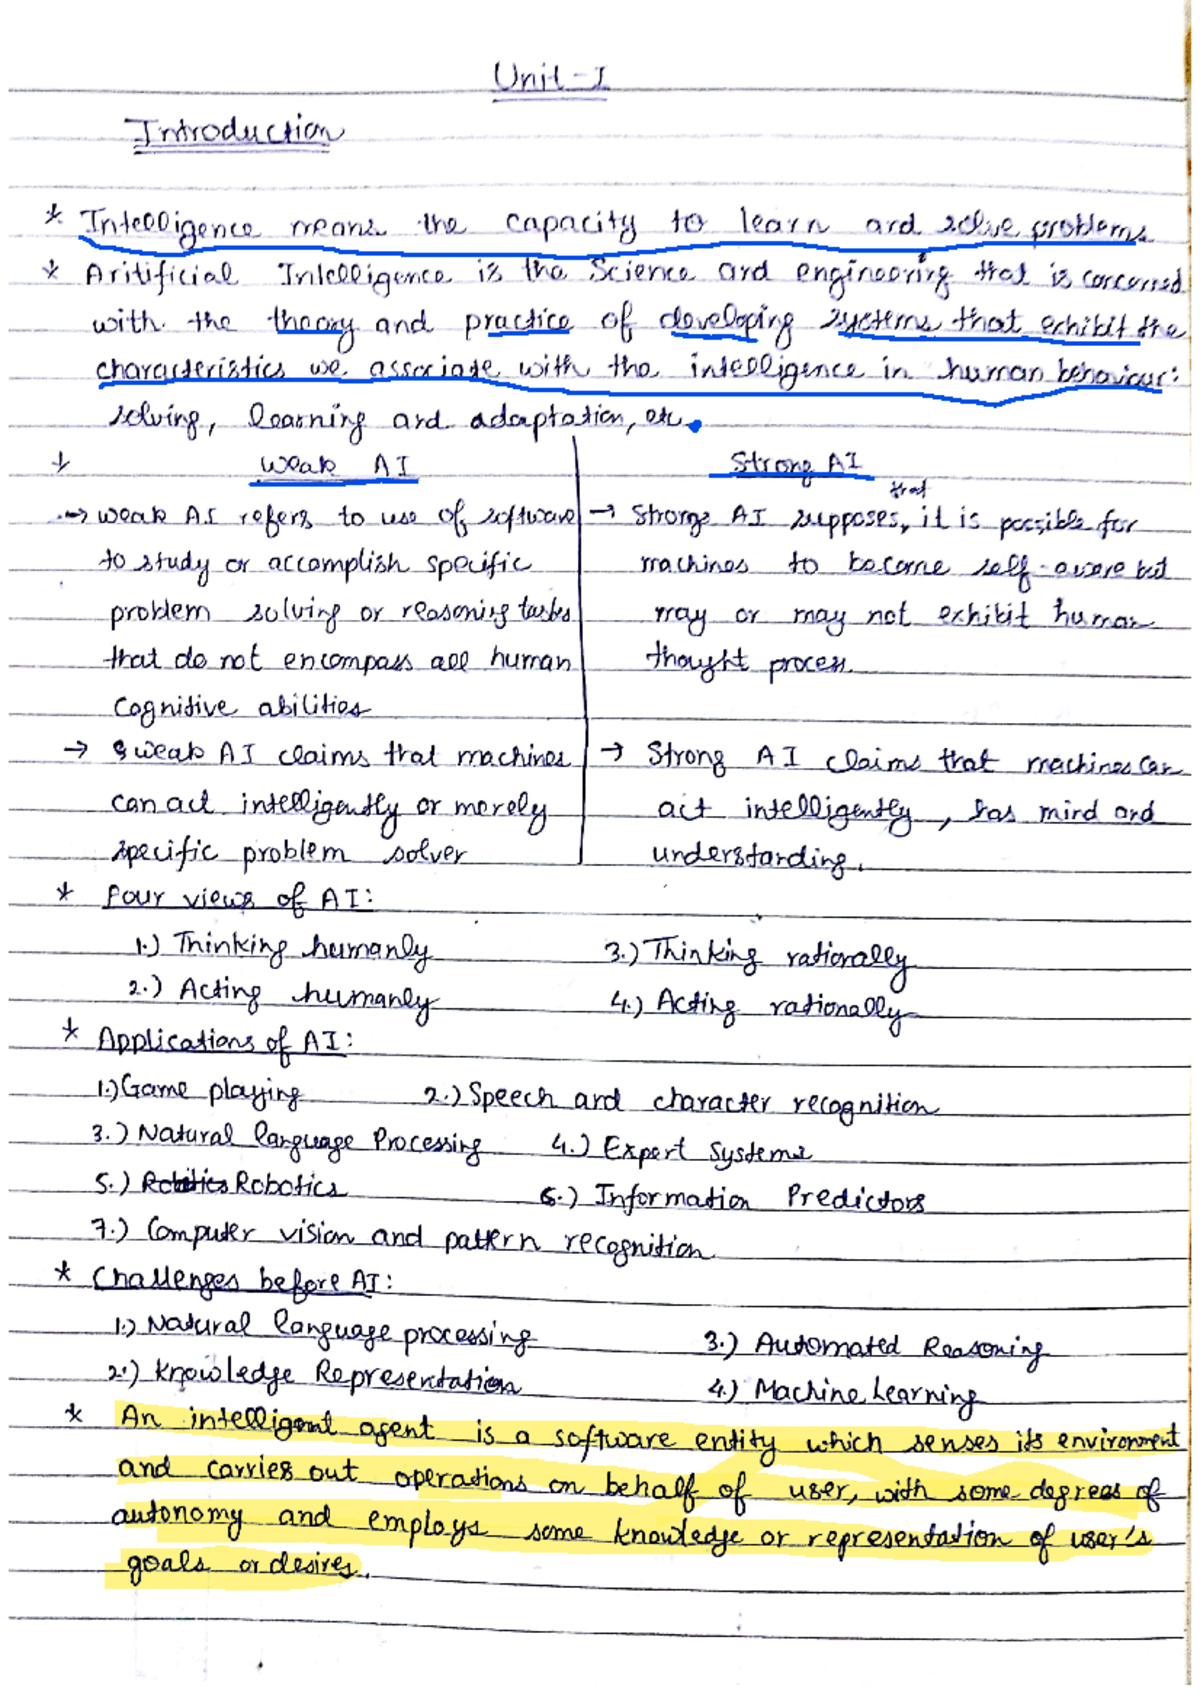 Unit-I
Introduction
* Intelligence means the capacity to learn and solve problems
* Aritificial Intelligence is the Science and engineering that is concerned
with the theory and practice of developing systems that exhibit the
characteristics we associate with the intelligence in human behaviour:
solving, learning and adaptation, etc.
* Weak AI
→ Weak AI refers to use of software
to study or accomplish specific
problem solving or reasoning tasks
that do not encompass all human
Cognitive abilities
→ weak AI claims that machines
can act intelligently or merely
specific problem solver
Strong AI
→ Strong AI supposes, that it is possible for
machines to become self-aware but
may or may not exhibit human
thought process
→ Strong AI claims that machines can
act intelligently, has mind and
understanding.
* Four views of AI:
1.) Thinking humanly 3.) Thinking rationally
2.) Acting humanly 4.) Acting rationally
* Applications of AI:
1.) Game playing 2.) Speech and character recognition
3.) Natural language Processing 4.) Expert Systems
5.) Robotics 6.) Information Predictors
7.) Computer vision and pattern recognition
* Challenges before AI:
1.) Natural language processing 3.) Automated Reasoning
2.) Knowledge Representation 4.) Machine Learning
* An intelligent agent is a software entity which senses its environment
and carries out operations on behalf of user, with some degrees of
autonomy and employs some knowledge or representation of user's
goals or desires.